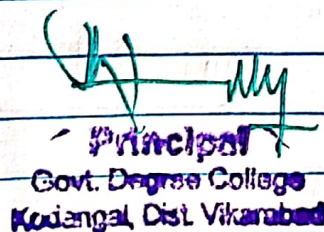 Principal
Govt. Degree College
Kodangal, Dist. Vikarabad